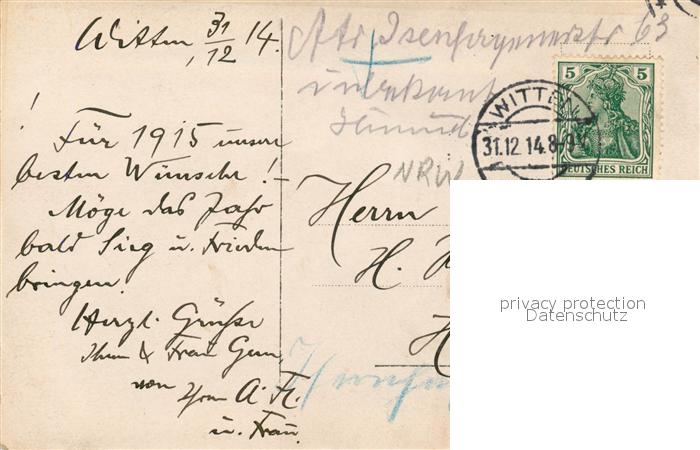 Witten, 31/12 14.
!
Für 1915 unsere
besten Wünsche! –
Möge das Jahr
bald Sieg u. Frieden
bringen.
Herzl. Grüße
Ihnen & Frau Gem.
von Ihrem A. Fr.
u. Frau.
63
unbekannt
NRW
WITTEN
31.12.14.8-9
5 5
DEUTSCHES REICH
Herrn
H.
H
privacy protection
Datenschutz